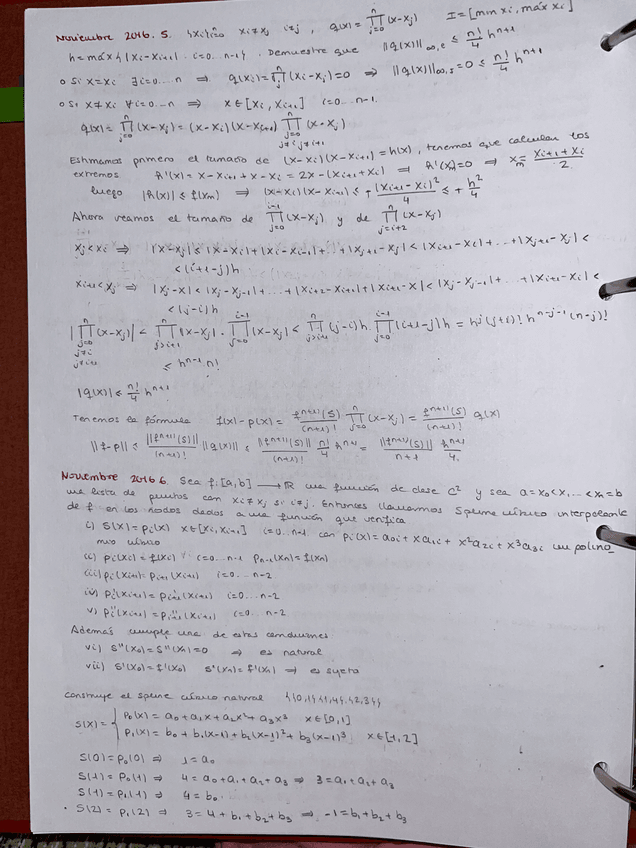 Noviembre 2016. 5. {xi}ⁿi=0 xi≠xj i≠j, q(x) = ∏ⁿj=0 (x-xj) I = [min xi, máx xi]
h = máx{|xi-xi+1| i=0..n-1}. Demuestre que ||q(x)||∞,I ≤ n!/4 hⁿ⁺¹
o Si x=xi ∃i=0...n ⇒ q(xi) = ∏ⁿj=0 (xi-xj) = 0 ⇒ ||q(x)||∞,I = 0 ≤ n!/4 hⁿ⁺¹
o Si x≠xi ∀i=0..n ⇒ x∈[xi, xi+1] i=0..n-1.
q(x) = ∏ⁿj=0 (x-xj) = (x-xi)(x-xi+1) ∏ⁿj=0 j≠i,j≠i+1 (x-xj)
Estimamos primero el tamaño de (x-xi)(x-xi+1) = h(x), tenemos que calcular los
extremos h'(x) = x-xi+1 + x-xi = 2x-(xi+1+xi) ⇒ h'(x)=0 ⇒ xm = (xi+1+xi)/2
luego |h(x)| ≤ f(xm) ⇒ (x-xi)(x-xi+1) ≤ + (xi+1-xi)²/4 ≤ + h²/4
Ahora veamos el tamaño de ∏ⁱ⁻¹j=0 (x-xj) y de ∏ⁿj=i+2 (x-xj)
xj<xi ⇒ |x-xj| ≤ |x-xi| + |xi-xi-1| + ... + |xj+1-xj| < |xi+1-xi| + ... + |xj+1-xj| <
< (i+1-j)h
xi+1<xj ⇒ |xj-x| < |xj-xj-1| + ... + |xi+2-xi+1| + |xi+1-x| < |xj-xj-1| + ... + |xi+1-xi| <
< (j-i)h
|∏ⁿj=0 j≠i j≠i+1 (x-xj)| < ∏ⁿj>i+1 |x-xj| · ∏ⁱ⁻¹j=0 |x-xj| < ∏ⁿj>i+1 (j-i)h ∏ⁱ⁻¹j=0 (i+1-j)h = hʲ(j+1)! hⁿ⁻ʲ⁻¹(n-j)!
≤ hⁿ⁻¹ n!
|q(x)| ≤ n!/4 hⁿ⁺¹
Tenemos la fórmula f(x)-p(x) = fⁿ⁺¹⁾(s)/(n+1)! ∏ⁿj=0 (x-xj) = fⁿ⁺¹⁾(s)/(n+1)! q(x)
||f-p|| ≤ ||fⁿ⁺¹⁾(s)||/(n+1)! ||q(x)|| ≤ ||fⁿ⁺¹⁾(s)||/(n+1)! n!/4 hⁿ⁺¹ = ||fⁿ⁺¹⁾(s)||/n+1 hⁿ⁺¹/4.
Noviembre 2016 6. Sea f:[a,b] → ℝ una función de clase C² y sea a=x0<x1...<xn=b
una lista de puntos con xi≠xj si i≠j. Entonces llamamos Spline cúbico interpolante
de f en los nodos dados a una función que verifica
i) S(x) = pi(x) x∈[xi, xi+1] i=0..n-1 con pi(x) = a0i + xa1i + x²a2i + x³a3i un polino
mio cúbico
ii) pi(xi) = f(xi) i=0..n-1 pn-1(xn) = f(xn)
iii) pi(xi+1) = pi+1(xi+1) i=0..n-2
iv) p'i(xi+1) = p'i+1(xi+1) i=0..n-2
v) p''i(xi+1) = p''i+1(xi+1) i=0..n-2
Además cumple una de estas condiciones
vi) S''(x0) = S''(xn) = 0 ⇒ es natural
vii) S'(x0) = f'(x0) S'(xn) = f'(xn) ⇒ es sujeto
Construye el spline cúbico natural {(0,1)(1,4)(2,3)}
S(x) = { p0(x) = a0 + a1x + a2x² + a3x³ x∈[0,1]
p1(x) = b0 + b1(x-1) + b2(x-1)² + b3(x-1)³ x∈[1,2]
S(0) = p0(0) ⇒ 1 = a0
S(1) = p0(1) ⇒ 4 = a0 + a1 + a2 + a3 ⇒ 3 = a1 + a2 + a3
S(1) = p1(1) ⇒ 4 = b0
· S(2) = p1(2) ⇒ 3 = 4 + b1 + b2 + b3 ⇒ -1 = b1 + b2 + b3